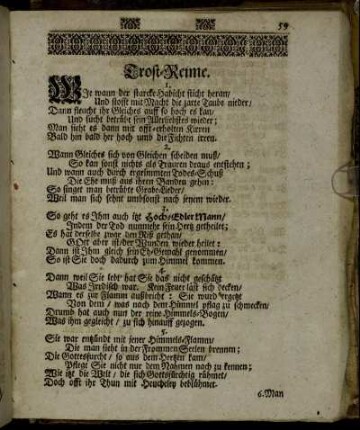 59
Trost-Reime.
1.
Wie wann der starcke Habicht sticht heran/
Und stosst mit Macht die zarte Taube nieder;
Dann fleucht ihr Gleiches auff so hoch es kan/
Und sucht betrübt sein Allerliebstes wieder;
Man sieht es dann mit offt-erholten Kirren
Bald hin bald her hoch umb die Fichten irren.
2.
Wann Gleiches sich von Gleichen scheiden muß/
So kan sonst nichts als Trauren draus entstehen;
Und wann auch durch ergrimmten Todes-Schuß
Die Ehe muß aus ihren Banden gehen:
So singet man betrübte Grabe-Lieder/
Weil man sich sehnt umbsonst nach jenem wieder.
3.
So geht es Ihm auch itzt Hoch-Edler Mann/
Indem der Tod nunmehr sein Hertz getheilet;
Es hat derselbe zwar den Riß gethan/
GOtt aber ist/der Wunden wieder heilet:
Dann ist Ihm gleich sein Eh-Gemahl genommen/
So ist Sie doch dadurch zum Himmel kommen.
4.
Dann weil Sie lebt/ hat Sie das nicht geschätzt
Was Irrdisch war. Kein Feuer läst sich decken/
Wann es zur Flamme außbricht: Sie ward ergetzt
Von dem / was nach dem Himmel pflag zu schmecken/
Drumb hat auch nun der reine Himmels-Bogen/
Was ihm gegleicht / zu sich hinauff gezogen.
5.
Sie war entzündt mit jener Himmels-Flamm/
Die man sieht in der Frommen Seelen brennen;
Die Gottesfurcht/ so aus dem Hertzen kam/
Pflegt Sie nicht nur dem Nahmen nach zu kennen;
Wie itzt die Welt / die sich Gottsfürchtig rühmet/
Doch offt ihr Thun mit Heucheley beblühmet.
6. Man